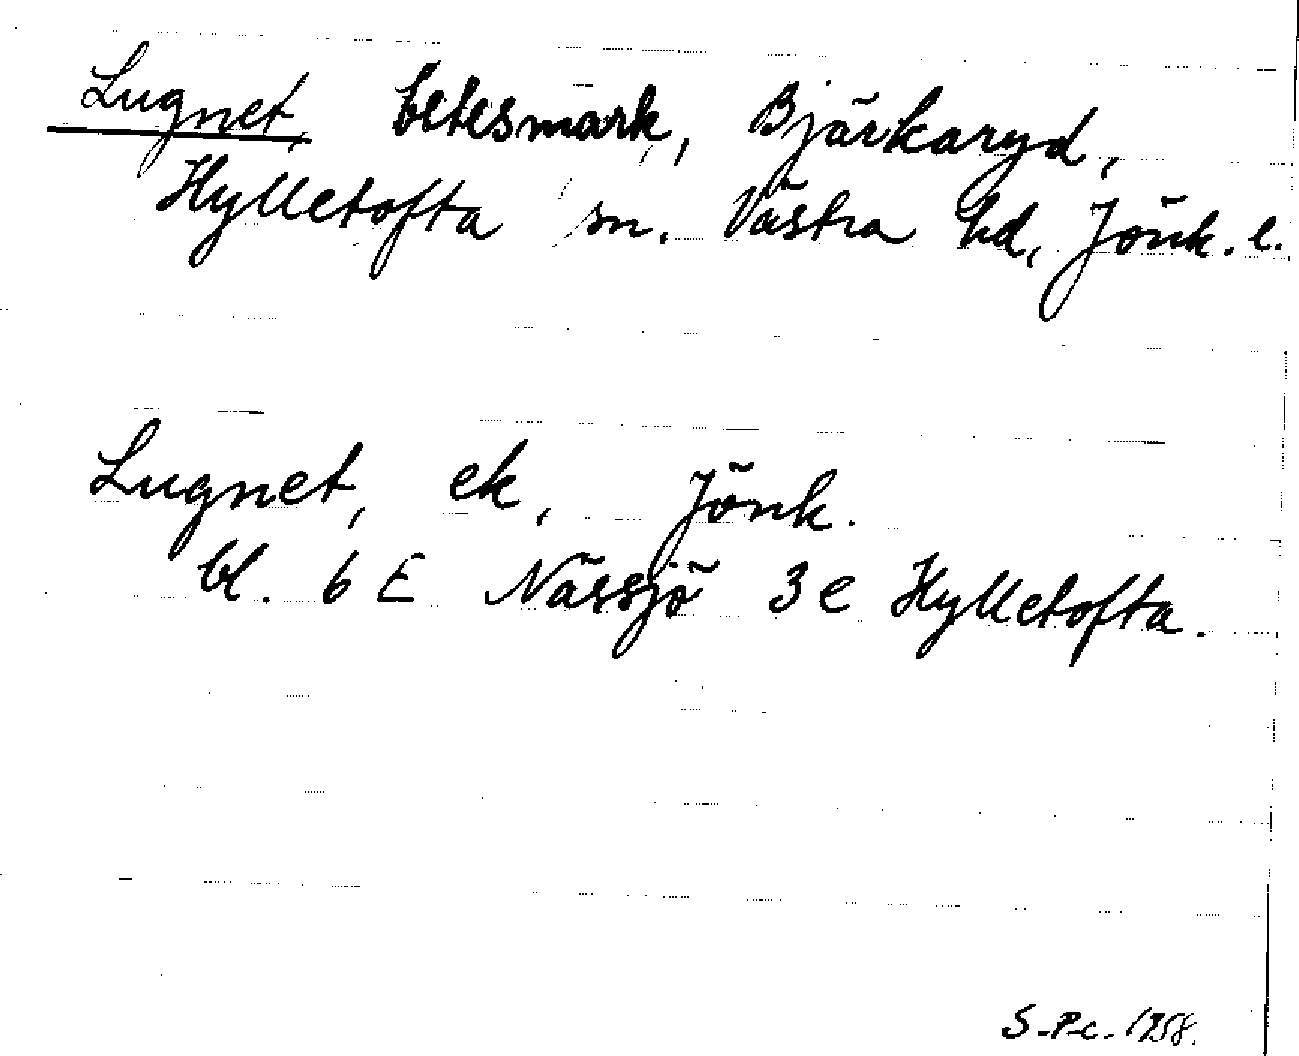 Lugnet, betesmark, Bjärkaryd,
Hylletofta sn. Västra hd, Jönk. l.
Lugnet, ek, Jönk.
bl. 6 E Nässjö 3 e Hylletofta.
S-P-c. 1258.